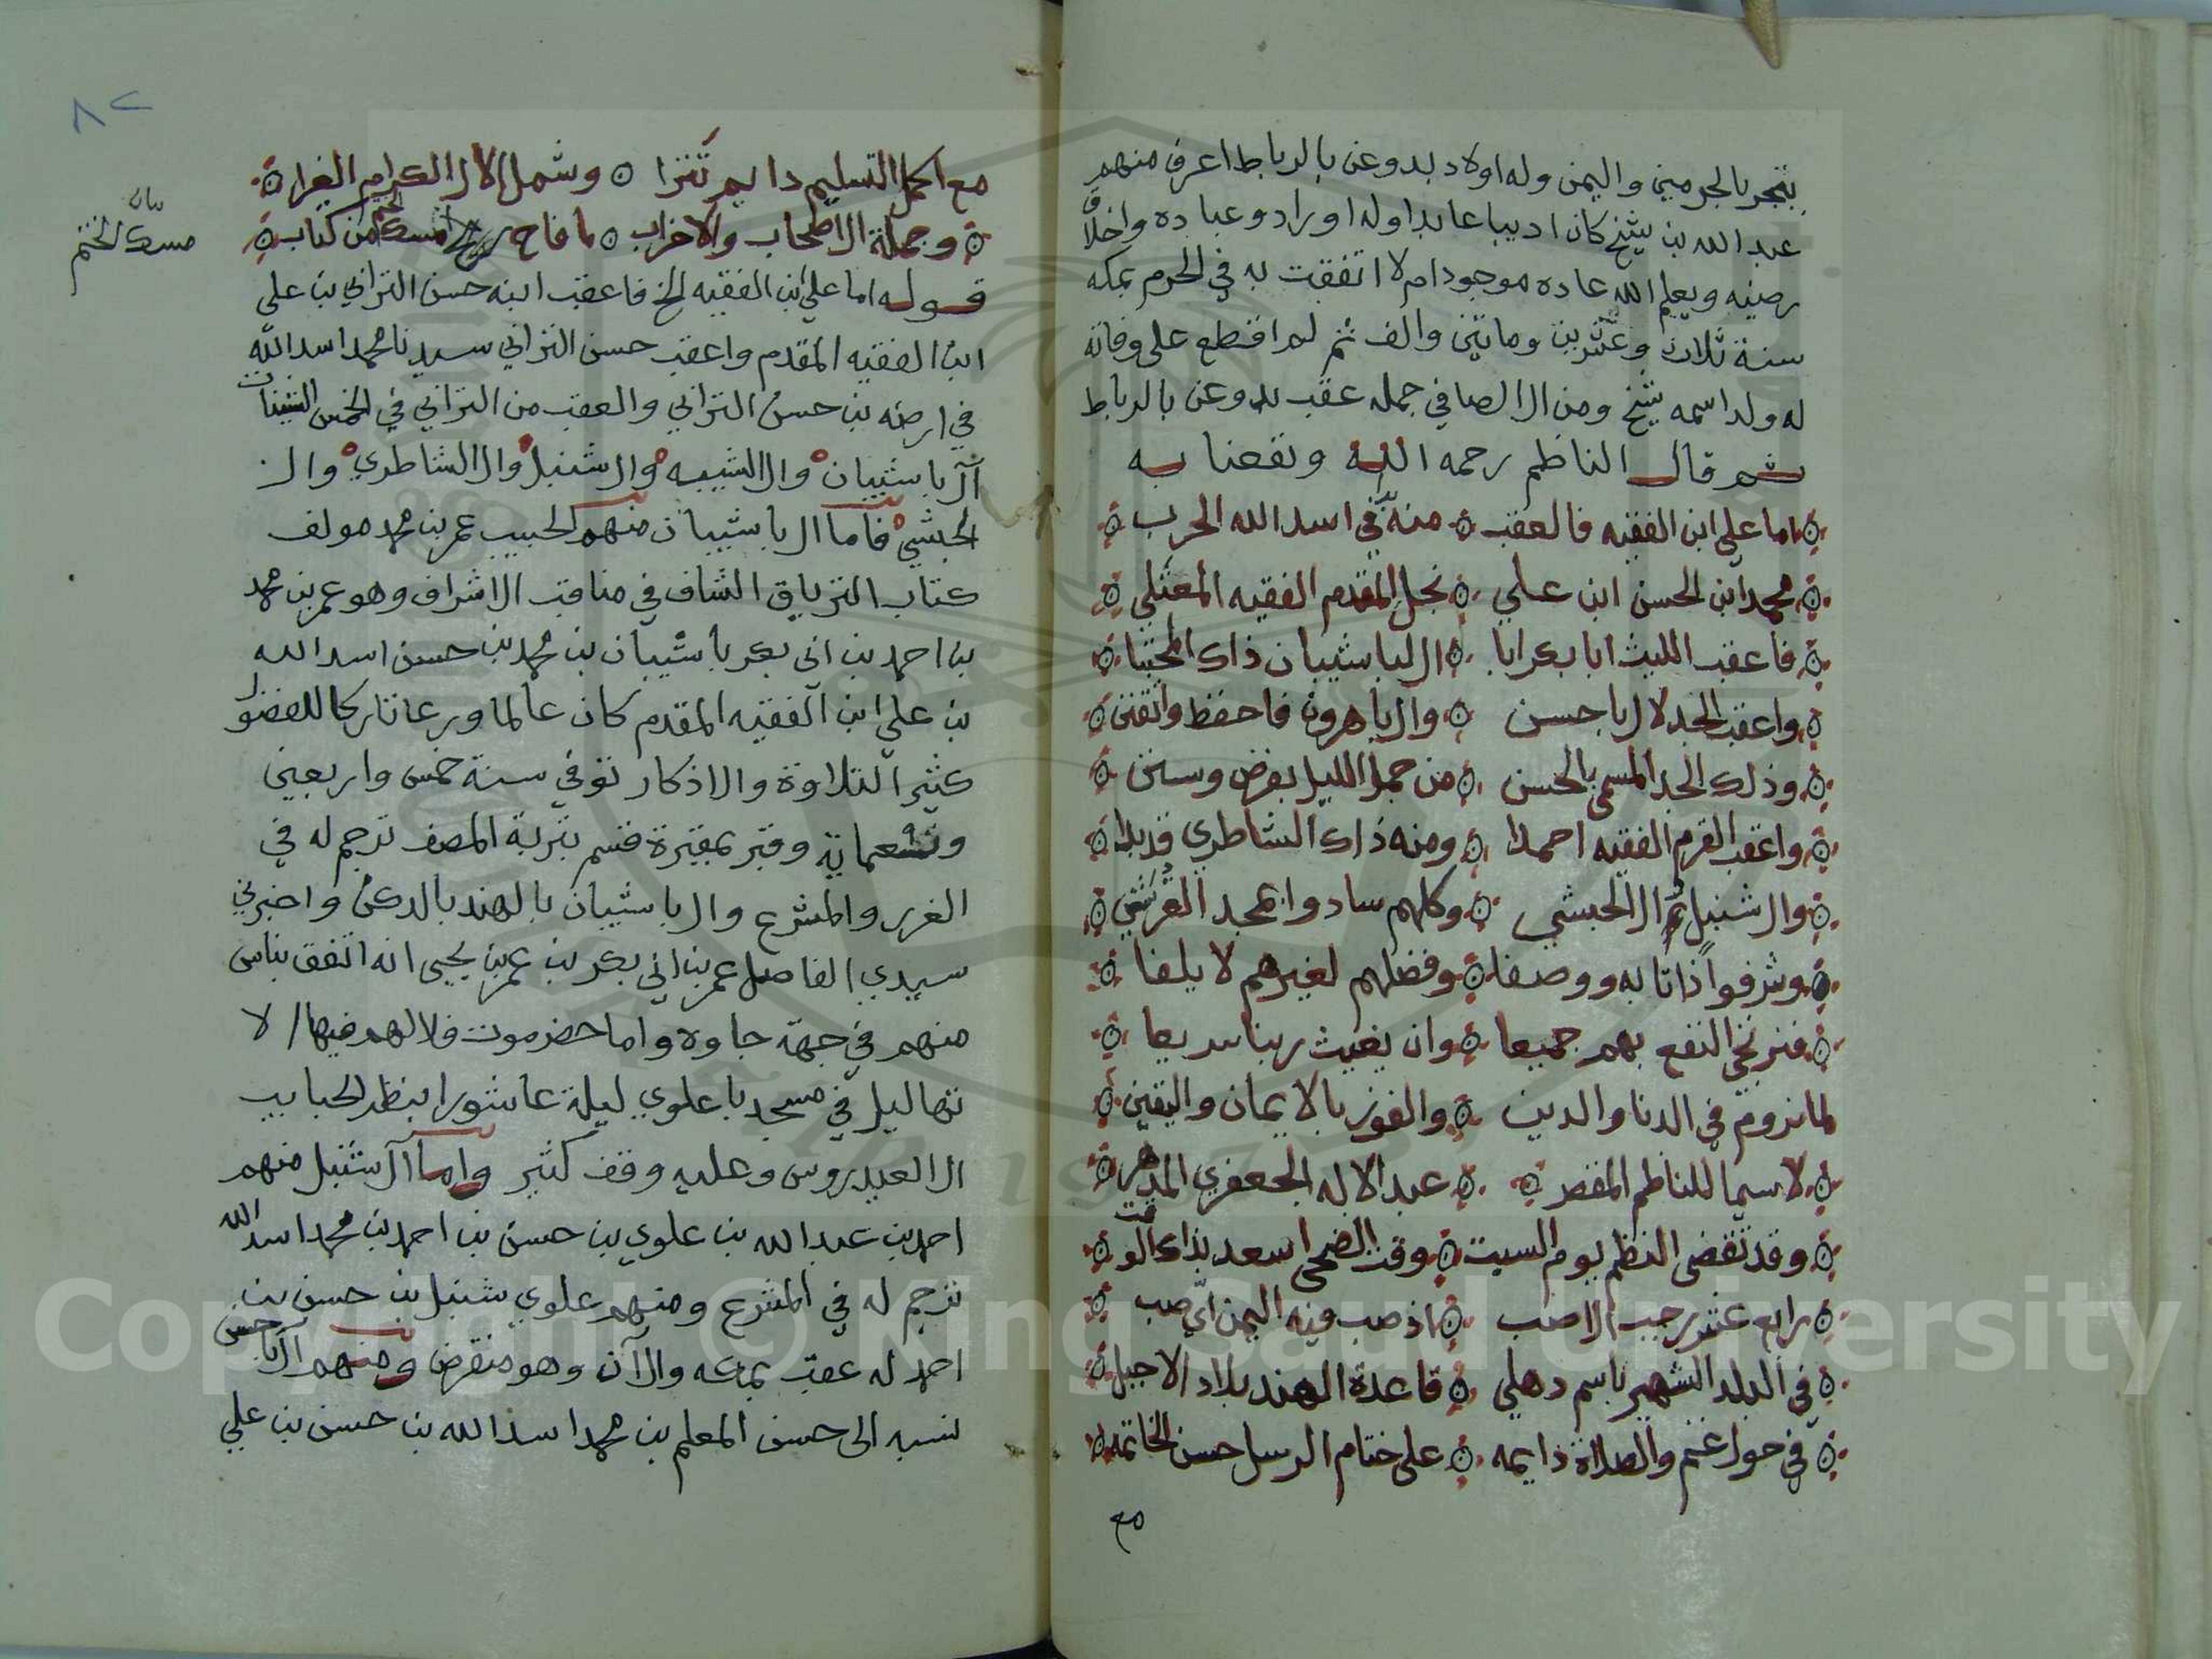 يتجر بالحرمين واليمن وله اولاد بدوعن بالرباط اعرف منهم
عبدالله بن شيخ كان اديبا عابدا وله اوراد وعباده واخلاق
رضيه ويعلم الله عاده موجود ام لا اتفقت به في الحرم بمكه
سنة ثلاث وعشرين وماتين والف ثم لم اقطع على وفاته
له ولد اسمه شيخ ومن ال الصافي جمله عقب بدوعن بالرباط
ثم قال الناظم رحمه الله ونفعنا به
اما علي ابن الفقيه فالعقب منه في اسد الله الحرب
محمد ابن الحسن ابن علي نجل المقدم الفقيه المعتلي
فاعقب الليث ابا بكر ابا ال لباشيبان ذاك المجتبا
واعقب الجد لال باحسن وال باهرون فاحفظ واتقن
وذلك الجد المسمى بالحسن من جمل الليل بفرض وسنن
واعقب القرم الفقيه احمدا ومنه ذاك الشاطري قد بدا
وال شنبل ثم ال الحبشي وكلهم سادوا بمجد القرشي
وشرفوا ذاتا به ووصفا وفضلهم لغيرهم لا يلفا
فنرتجي النفع بهم جميعا وان يغيث ربنا سريعا
لما نروم في الدنا والدين والفوز بالايمان واليقين
لاسيما للناظم المقصر عبد الاله الجعفري المدهر
وقد تقضى النظم يوم السبت وقت الضحى اسعد بذاك الوقت
رابع عشر رجب الاصب اذ صب فيه اليمن اي صب
في البلد الشهير باسم دهلي قاعدة الهند بلاد الاجبل
في حول غنم والصلاة دايمه على ختام الرسل حسن الخاتمه
مع
٨٢
مع اكمل التسليم دايم تترا وشمل الال الكرام الغرا
وجملة الاصحاب والاحزاب ما فاح مسك الختم من كتاب
بيان
مسك الختم
قوله اما علي ابن الفقيه الخ فاعقب ابنه حسن الترابي بن علي
ابن الفقيه المقدم واعقب حسن الترابي سيدنا محمد اسد الله
في ارضه بن حسن الترابي والعقب من الترابي في الخمس الشينات
آل باشيبان وال الشبيه وال شنبل وال الشاطري وال
الحبشي فاما ال باشيبان منهم الحبيب عمر بن محمد مولف
كتاب الترياق الشاف في مناقب الاشراف وهو عمر بن محمد
بن احمد بن ابي بكر باشيبان بن محمد بن حسن اسد الله
بن علي ابن الفقيه المقدم كان عالما ورعا تاركا للفضول
كثير التلاوة والاذكار توفي سنة خمس واربعين
وتسعماية وقبر بمقبرة قسم بتربة المصف ترجم له في
الغرر والمشرع وال باشيبان بالهند بالدكن واخبرني
سيدي الفاضل عمر بن ابي بكر بن عمر بن يحيى انه اتفق بناس
منهم في جهة جاوه واما حضرموت فلا لهم فيها الا
تهاليل في مسجد باعلوي ليلة عاشورا بنظر الحبايب
ال العيدروس وعليه وقف كثير واما آل شنبل منهم
احمد بن عبدالله بن علوي بن حسن بن احمد بن محمد اسد الله
ترجم له في المشرع ومنهم علوي شنبل بن حسن بن
احمد له عقب والآن وهو منقرض ومنهم آل باحسن
نسبه الى حسن المعلم بن محمد اسد الله بن حسن بن علي
Copyright © King Saud University